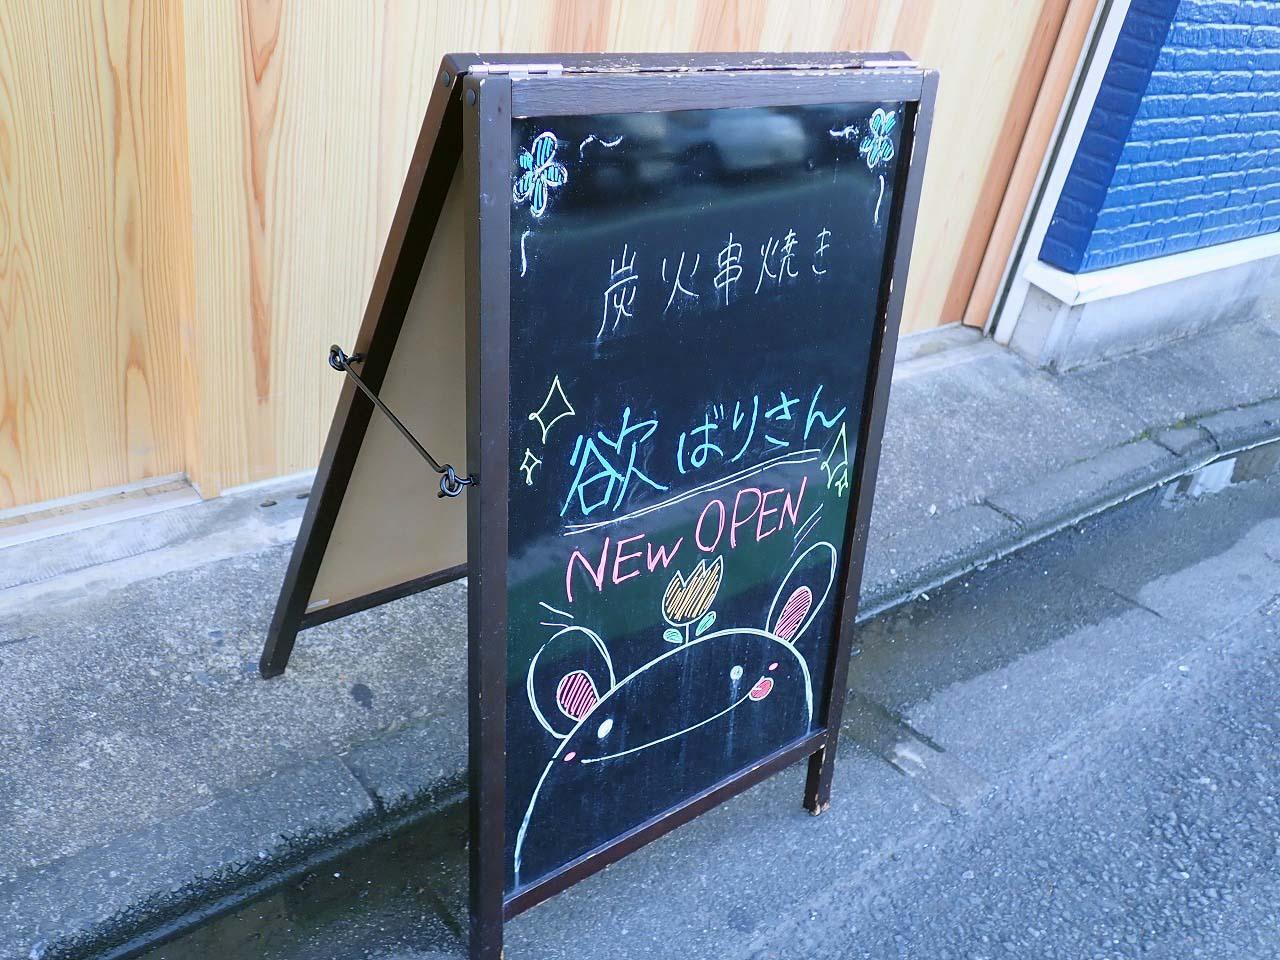 炭火串焼き
欲ばりさん
NEW OPEN